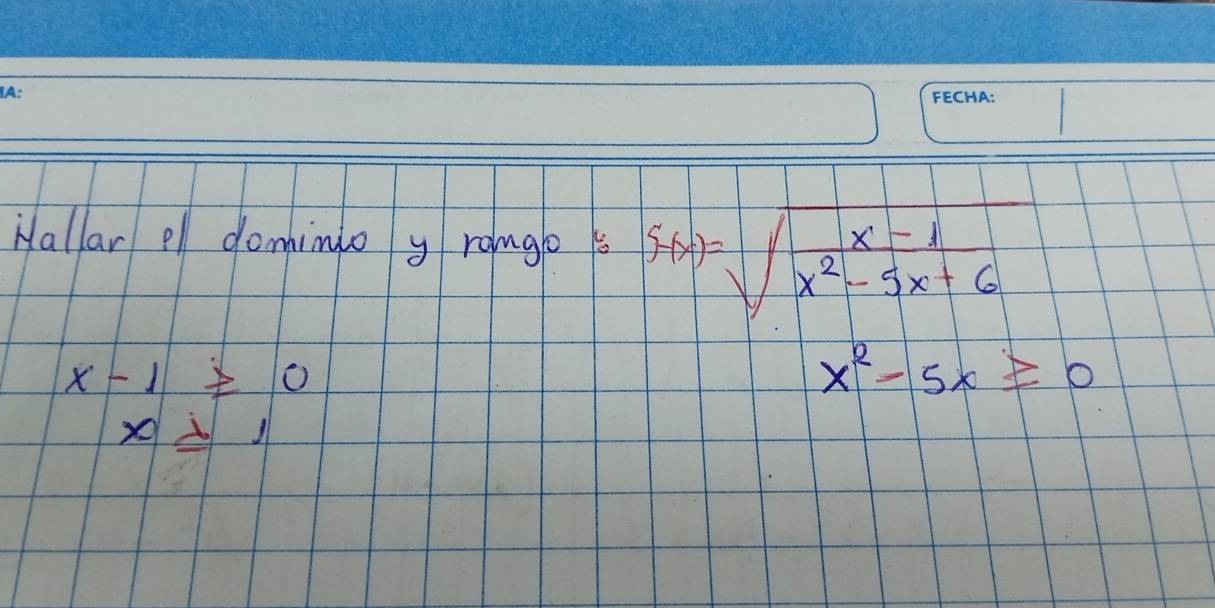 IA:
FECHA:
Hallar el dominio y rango : f(x)= √ x - 1
x² - 5x + 6
x - 1 ≥ 0
x² - 5x ≥ 0
x ≥ 1